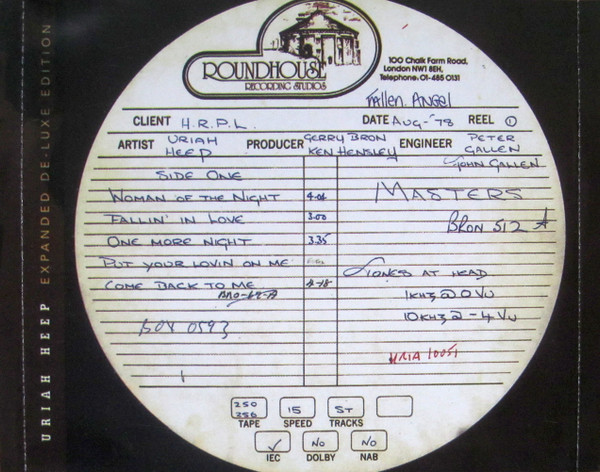 URIAH HEEP EXPANDED DE-LUXE EDITION
ROUNDHOUSE
RECORDING STUDIOS
100 Chalk Farm Road,
London NW1 8EH,
Telephone: 01-485 0131
Fallen Angel
CLIENT H.R.P.L. DATE AUG-'78 REEL 1
ARTIST URIAH HEEP PRODUCER GERRY BRON KEN HENSLEY ENGINEER PETER GALLEN JOHN GALLEN
SIDE ONE
WOMAN OF THE NIGHT 4.06
MASTERS
FALLIN' IN LOVE 3.00
BRON 512 A
ONE MORE NIGHT 3.35
PUT YOUR LOVIN ON ME
TONES AT HEAD
COME BACK TO ME 4-18
BRO-69-A
1KHz @ 0 VU
10KHz @ -4 VU
BOX 0593
URIA 10051
250 256 15 ST
TAPE SPEED TRACKS
✓ NO NO
IEC DOLBY NAB